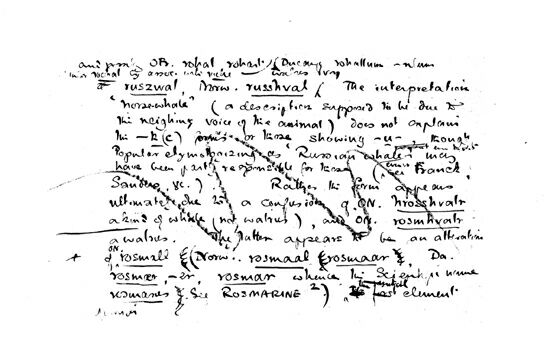 and prob. OF. rohal, rohart, (Ducange rohallum
ruszwal, Norw. russhval ( The interpretation
'horse-whale' (a description supposed to be due to
the neighing voice of the animal) does not explain
the -h(e) or those showing -u- though
Popular etymologizing as 'Russian whale' may
have been partly responsible for these (see Franck,
Sanders, &c.) Rather the form appears
ultimately due to a confusion of ON. hrosshvalr
a kind of whale (not walrus), and ON. rosmhvalr
a walrus. The latter appears to be an alteration
of rosmall (Norw. rosmaal rosmaar, Da.
rosmer, -er, rosmar whence the scientific name
rosmarus. See ROSMARINE 2) element.